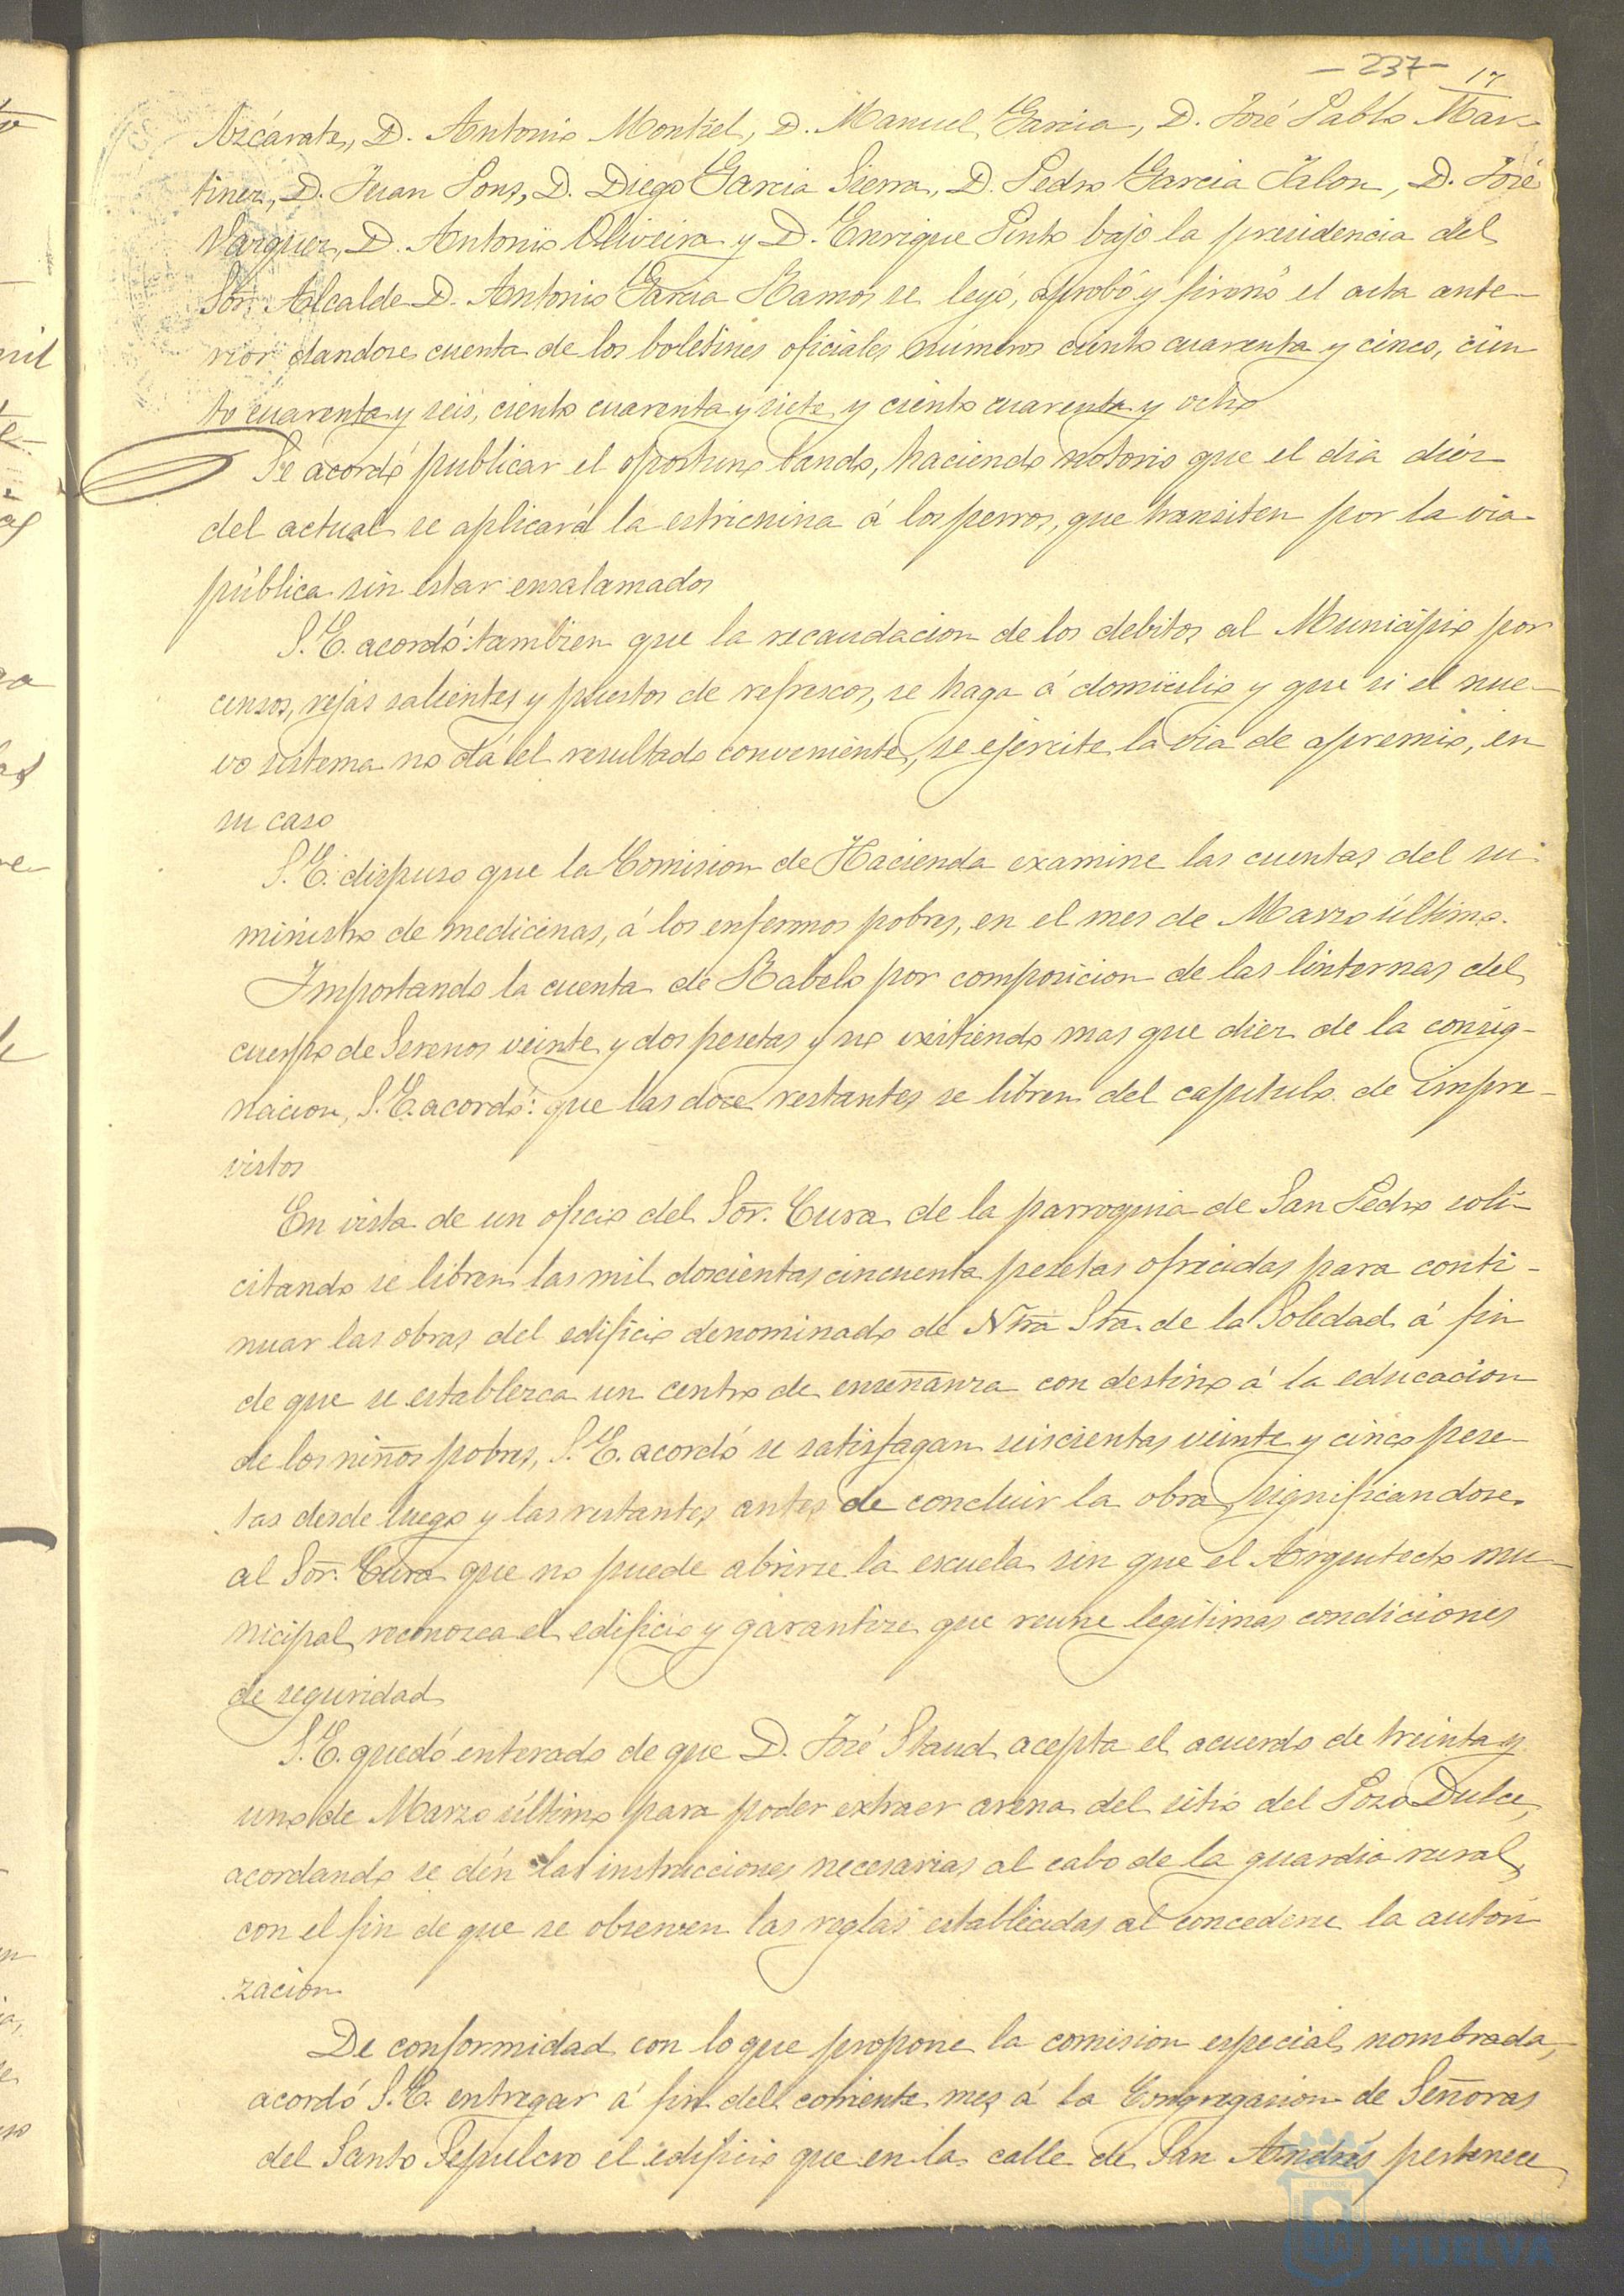 - 237 -
17
Azcárate, D. Antonio Montiel, D. Manuel Garcia, D. José Pablo Mar-
tinez, D. Juan Pons, D. Diego Garcia Sierra, D. Pedro Garcia Jalon, D. José
Vazquez, D. Antonio Oliveira y D. Enrique Pinto bajo la presidencia del
Sor. Alcalde D. Antonio Garcia Ramos se leyó, aprobó y firmó el acta ante-
rior dandose cuenta de los boletines oficiales números ciento cuarenta y cinco, cien
to cuarenta y seis, ciento cuarenta y siete y ciento cuarenta y ocho
Se acordó publicar el oportuno bando, haciendo notorio que el dia diez
del actual se aplicará la estricnina á los perros, que transiten por la via
pública sin estar enzalamados
S. E. acordó: tambien que la recaudacion de los debitos al Municipio por
censos, rejas salientes y puestos de refrescos, se haga á domicilio y que si el nue-
vo sistema no dá el resultado conveniente, se ejercite la via de apremio, en
su caso
S. E. dispuso que la Comision de Hacienda examine las cuentas del su-
ministro de medicinas, á los enfermos pobres, en el mes de Marzo último.
Importando la cuenta de Rabelo por composicion de las linternas del
cuerpo de Serenos veinte y dos pesetas y no existiendo mas que diez de la consig-
nacion, S. E. acordó: que las doce restantes se libren del capitulo de impre-
vistos
En vista de un oficio del Sor. Cura de la parroquia de San Pedro soli-
citando se libren las mil doscientas cincuenta pesetas ofrecidas para conti-
nuar las obras del edificio denominado de Ntra Sra. de la Soledad á fin
de que se establezca un centro de enseñanza con destino á la educacion
de los niños pobres, S. E. acordó se satisfagan seiscientas veinte y cinco pese-
tas desde luego y las restantes antes de concluir la obra, significandose
al Sor. Cura que no puede abrirse la escuela sin que el Arquitecto mu-
nicipal reconozca el edificio y garantize que reune legítimas condiciones
de seguridad
S. E. quedó enterado de que D. José Staud acepta el acuerdo de treinta y
uno de Marzo último para poder extraer arena del sitio del Pozo Dulce,
acordando se dén las instrucciones necesarias al cabo de la guardia rural,
con el fin de que se observen las reglas establecidas al concederse la autori
zacion
De conformidad con lo que propone la comision especial nombrada,
acordó S. E. entregar á fin del corriente mes á la Congregacion de Señoras
del Santo Sepulcro el edificio que en la calle de San Andrés pertenece
HUELVA